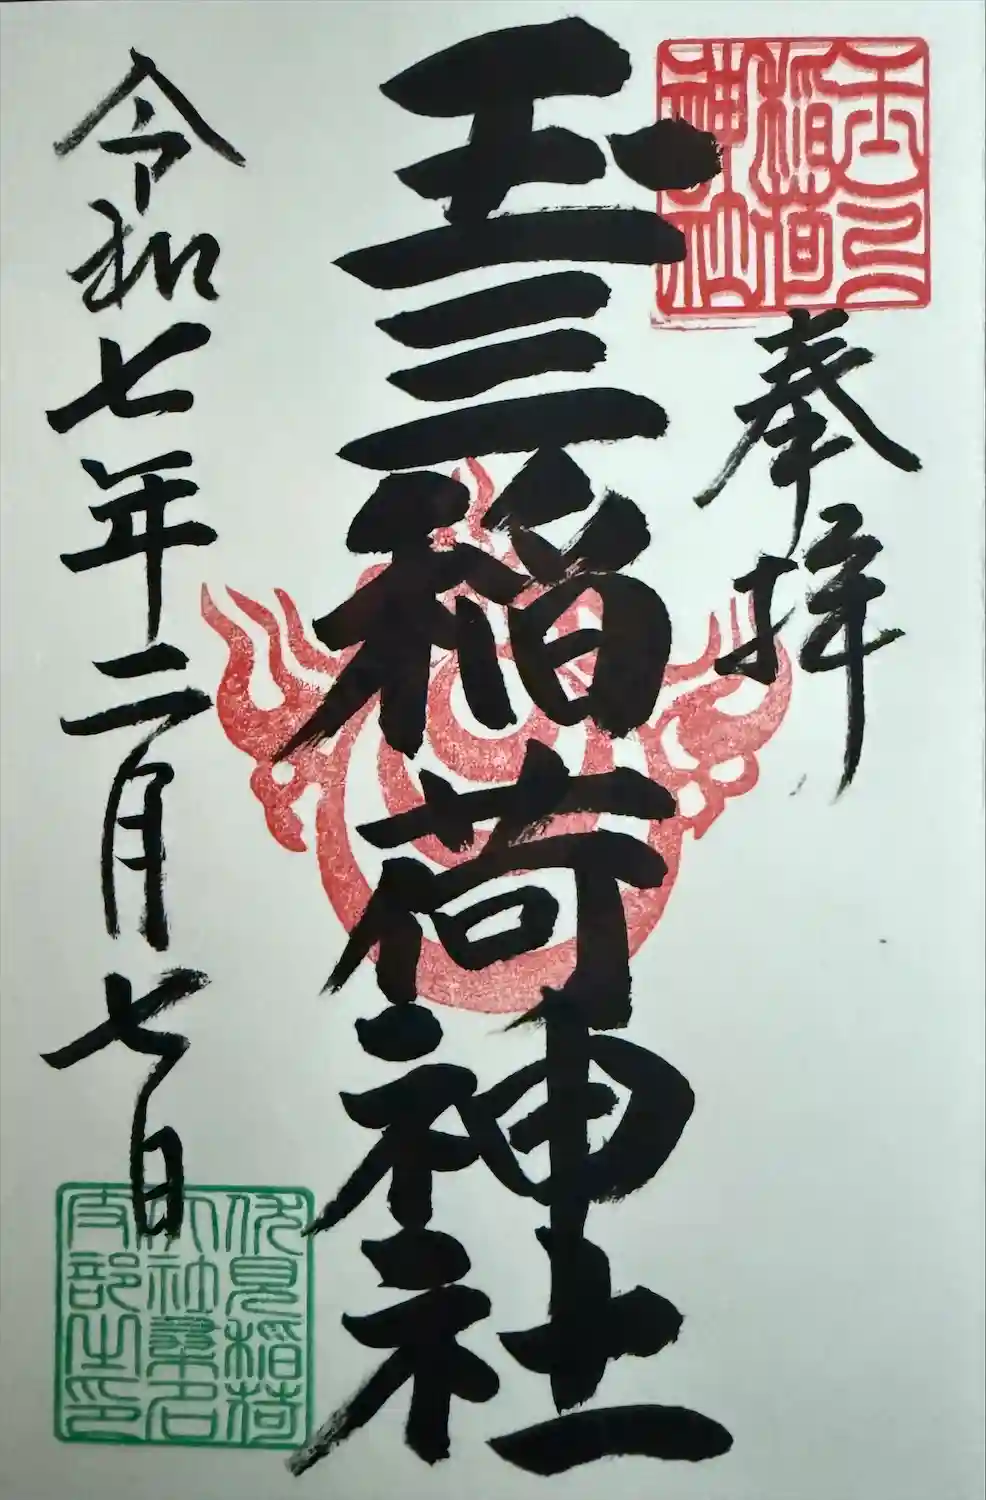 玉三
稲荷
神社
奉拝
玉三稲荷神社
令和七年二月七日
伏見稲荷
大社桑名
支部之印